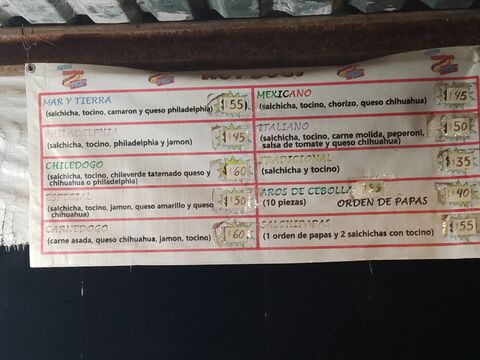 HOTDOGS!
MAR Y TIERRA
(salchicha, tocino, camaron y queso philadelphia)
$55
PHILADELPHIA
(salchicha, tocino, philadelphia y jamon)
$45
CHILEDOGO
(salchicha, tocino, chileverde tatemado queso
chihuahua o philadelphia)
$60
ESPECIAL
(salchicha, tocino, jamon, queso amarillo y queso
chihuahua)
$50
CARNEDOGO
(carne asada, queso chihuahua, jamon, tocino)
$60
MEXICANO
(salchicha, tocino, chorizo, queso chihuahua)
$45
ITALIANO
(salchicha, tocino, carne molida, peperoni,
salsa de tomate y queso chihuahua)
$50
TRADICIONAL
(salchicha y tocino)
$35
AROS DE CEBOLLA
(10 piezas) ORDEN DE PAPAS
$40
SALCHIPAPAS
(1 orden de papas y 2 salchichas con tocino)
$55